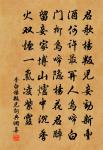 君歌楊叛兒妾勸新豐
酒何許最關人烏啼白
門柳烏啼隱楊花君醉
留妾家博山爐中沉香
火雙煙一氣凌紫霞
李白楊叛兒